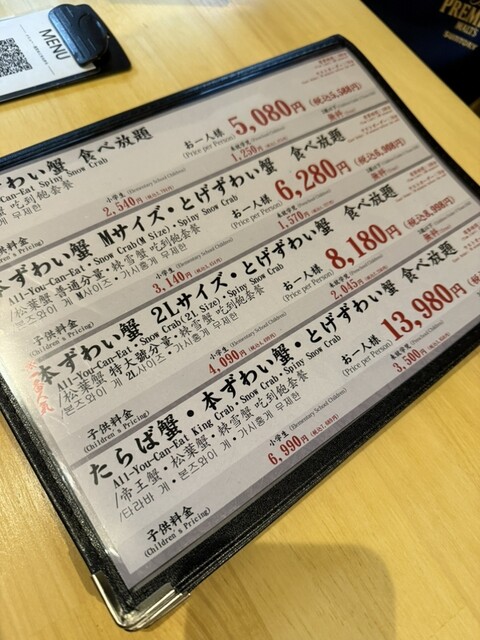 MENU
PREM
MALTS
SUNTORY
わい蟹 食べ放題
Can-Eat Spiny Snow Crab
蟹 吃到飽套餐
게 무제한
お一人様
(Price per Person)
5,080円
(税込5,588円)
子供料金
(Children's Pricing)
小学生 (Elementary School Children)
2,540円
1,250円
無料
本ずわい蟹 Mサイズ・とげずわい蟹 食べ放題
All-You-Can-Eat Snow Crab(M Size)・Spiny Snow Crab
/松葉蟹 普通分量・棘雪蟹 吃到飽套餐
/본즈와이 게 M사이즈・가시홍게 무제한
お一人様
(Price per Person)
6,280円
(税込6,908円)
子供料金
(Children's Pricing)
小学生 (Elementary School Children)
3,140円
1,570円
無料
本ずわい蟹 2Lサイズ・とげずわい蟹 食べ放題
All-You-Can-Eat Snow Crab(2L Size)・Spiny Snow Crab
/松葉蟹・特大號分量・棘雪蟹 吃到飽套餐
/본즈와이 게 2L사이즈・가시홍게 무제한
お一人様
(Price per Person)
8,180円
(税込8,998円)
子供料金
(Children's Pricing)
小学生 (Elementary School Children)
4,090円
2,045円
無料
たらば蟹・本ずわい蟹・とげずわい蟹 食べ放題
All-You-Can-Eat King Crab・Snow Crab・Spiny Snow Crab
/帝王蟹・松葉蟹・棘雪蟹 吃到飽套餐
/타라바 게・본즈와이 게・가시홍게 무제한
お一人様
(Price per Person)
13,980円
子供料金
(Children's Pricing)
小学生 (Elementary School Children)
6,990円
3,500円